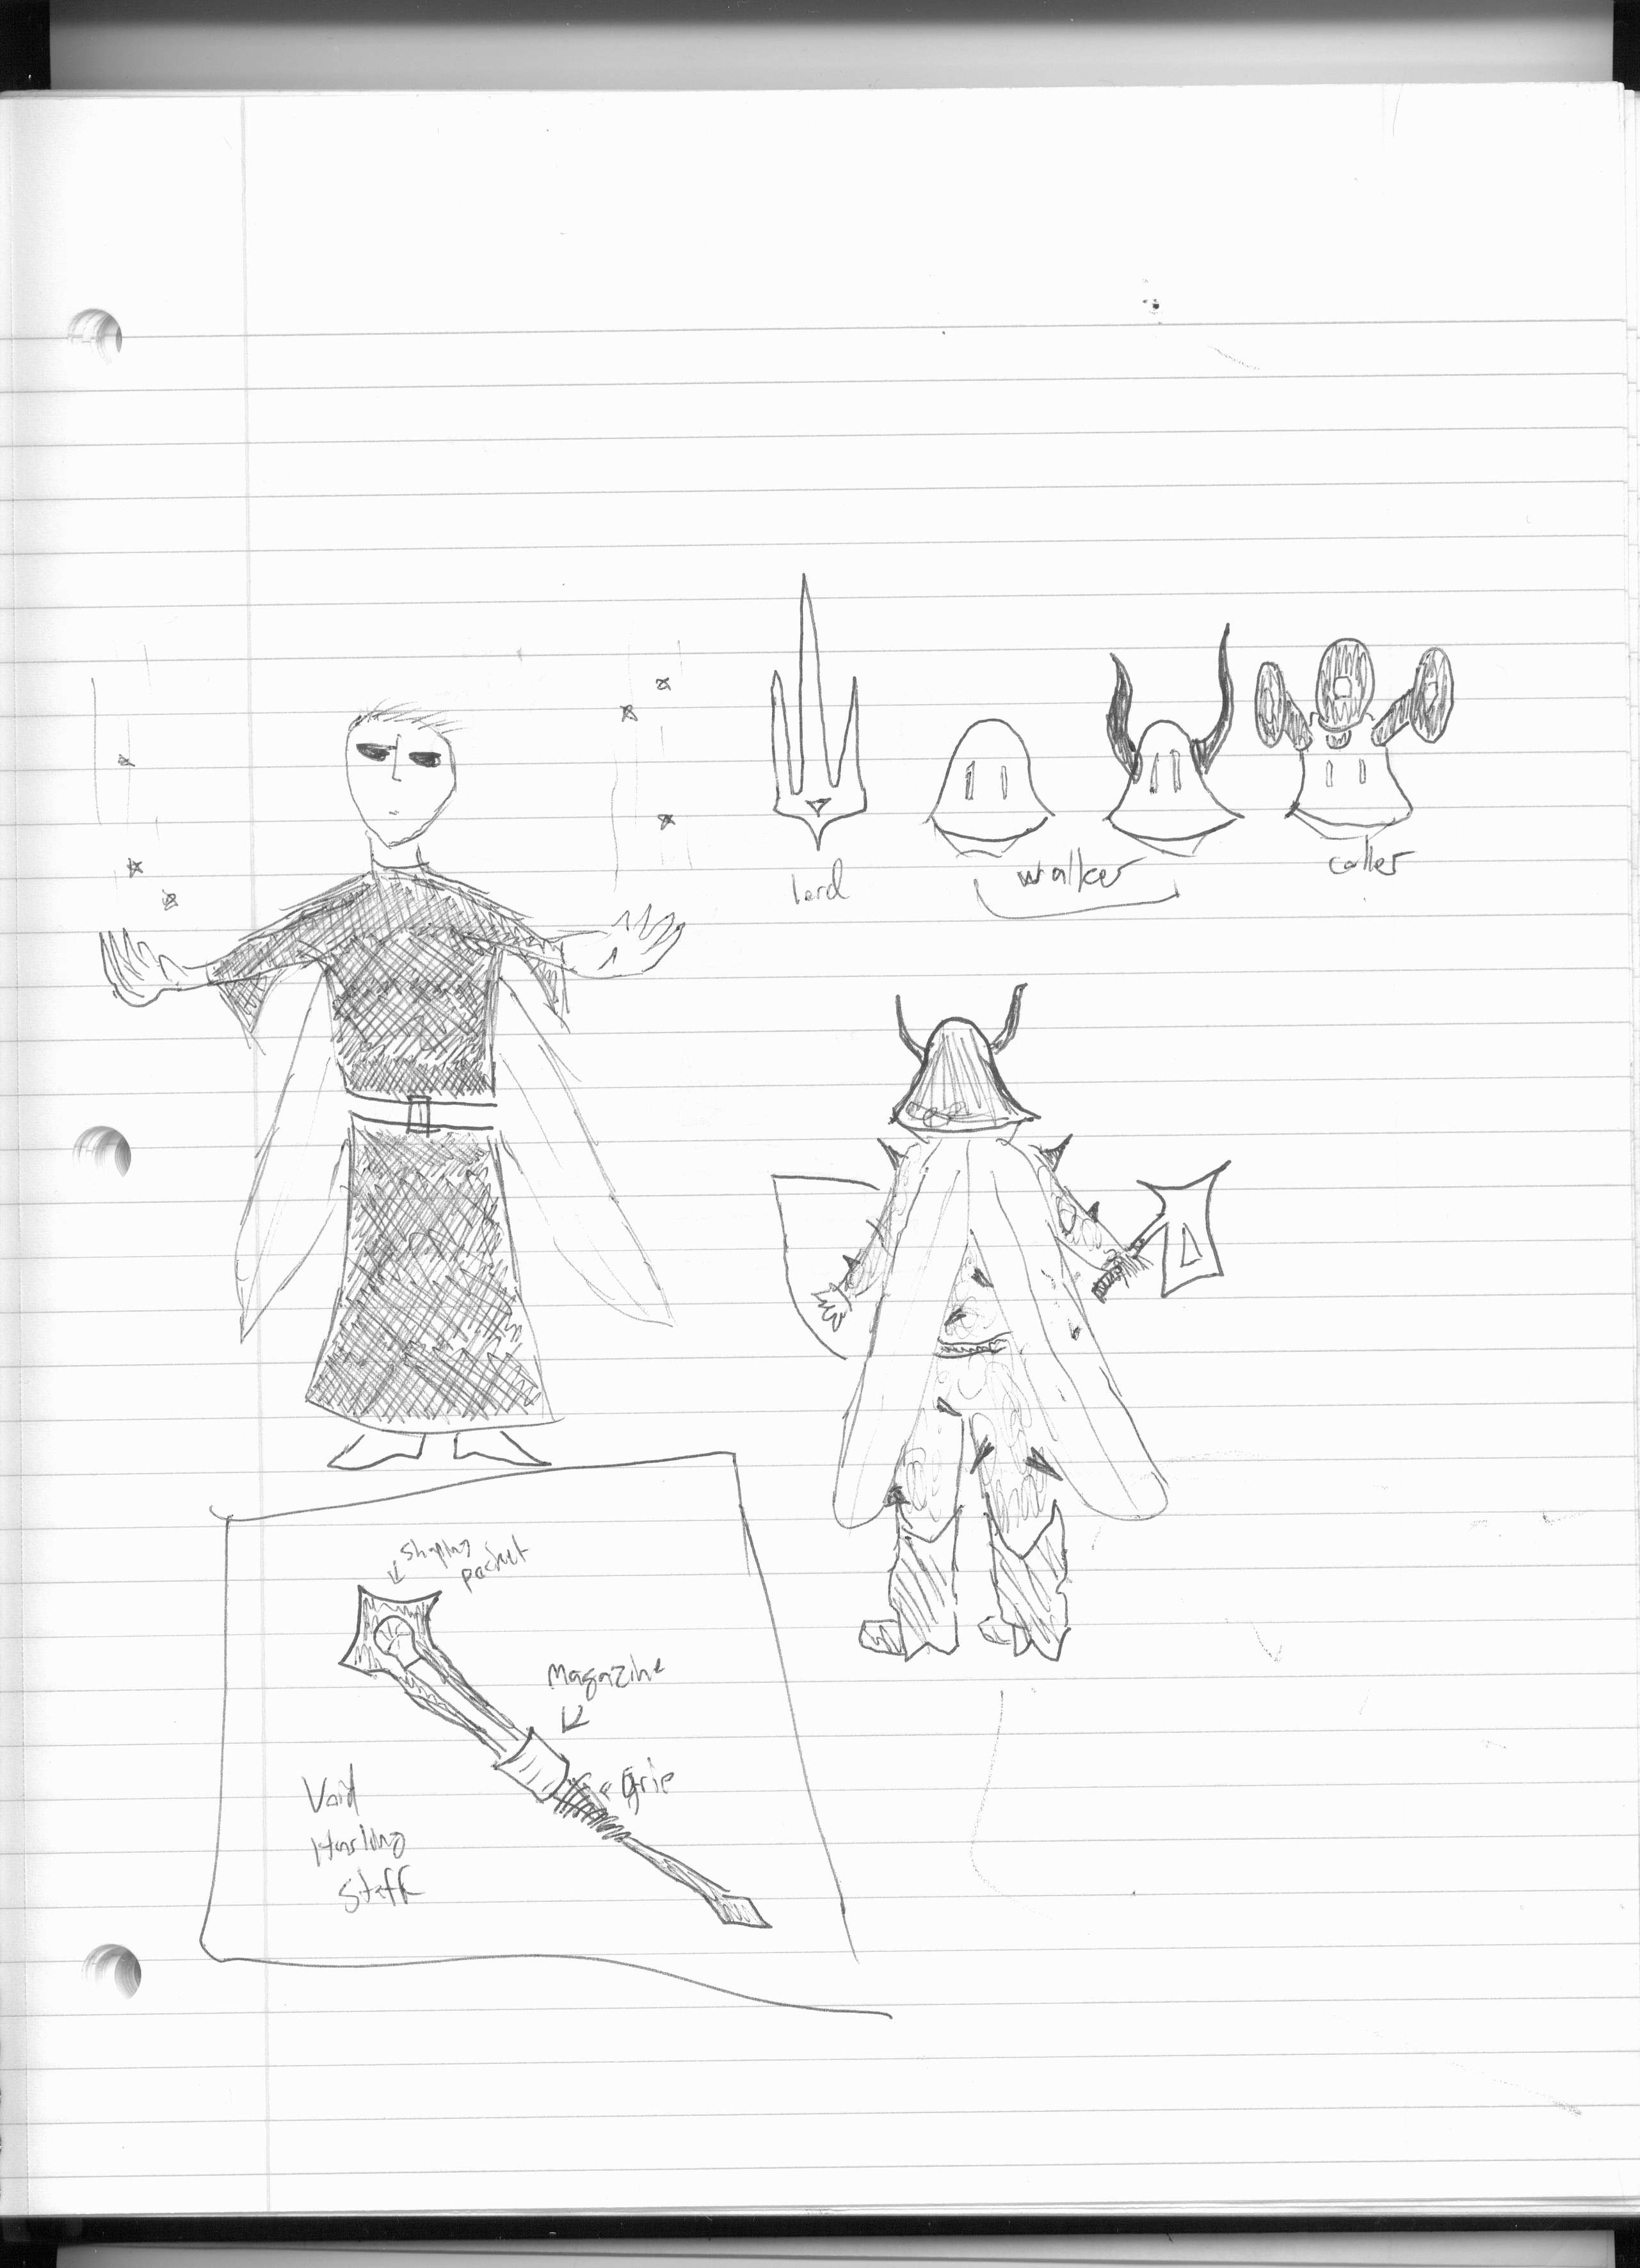 lord
walker
caller
shaping
Magazine
Grip
Void
Hurling
Staff